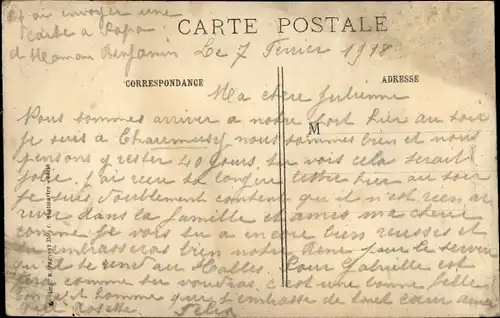 J'ai envoyer une
Carte a Papa
et Maman Benjamin
CARTE POSTALE
Le 7 Fevrier 1918
CORRESPONDANCE
ADRESSE
Ma chere Julienne
Nous sommes arriver a notre fort hier au soir
M
je suis a nous sommes bien et nous
pensons y rester 40 jours, tu vois cela serait
jolie. j'ai reçu ta longue lettre hier au soir
je suis doublement content qu'il n'est rien ar
river dans la famille et amis, ma cherie
comme je vois tu a encore bien reussis et
tu embrasseras bien notre Rene pour le service
qu'il se rend au Halles. Pour Gabrielle est
comme tu voudras, c'est une bonne fille
homme qui t'embrasse de tout cœur ainsi
que Rosette. Felix